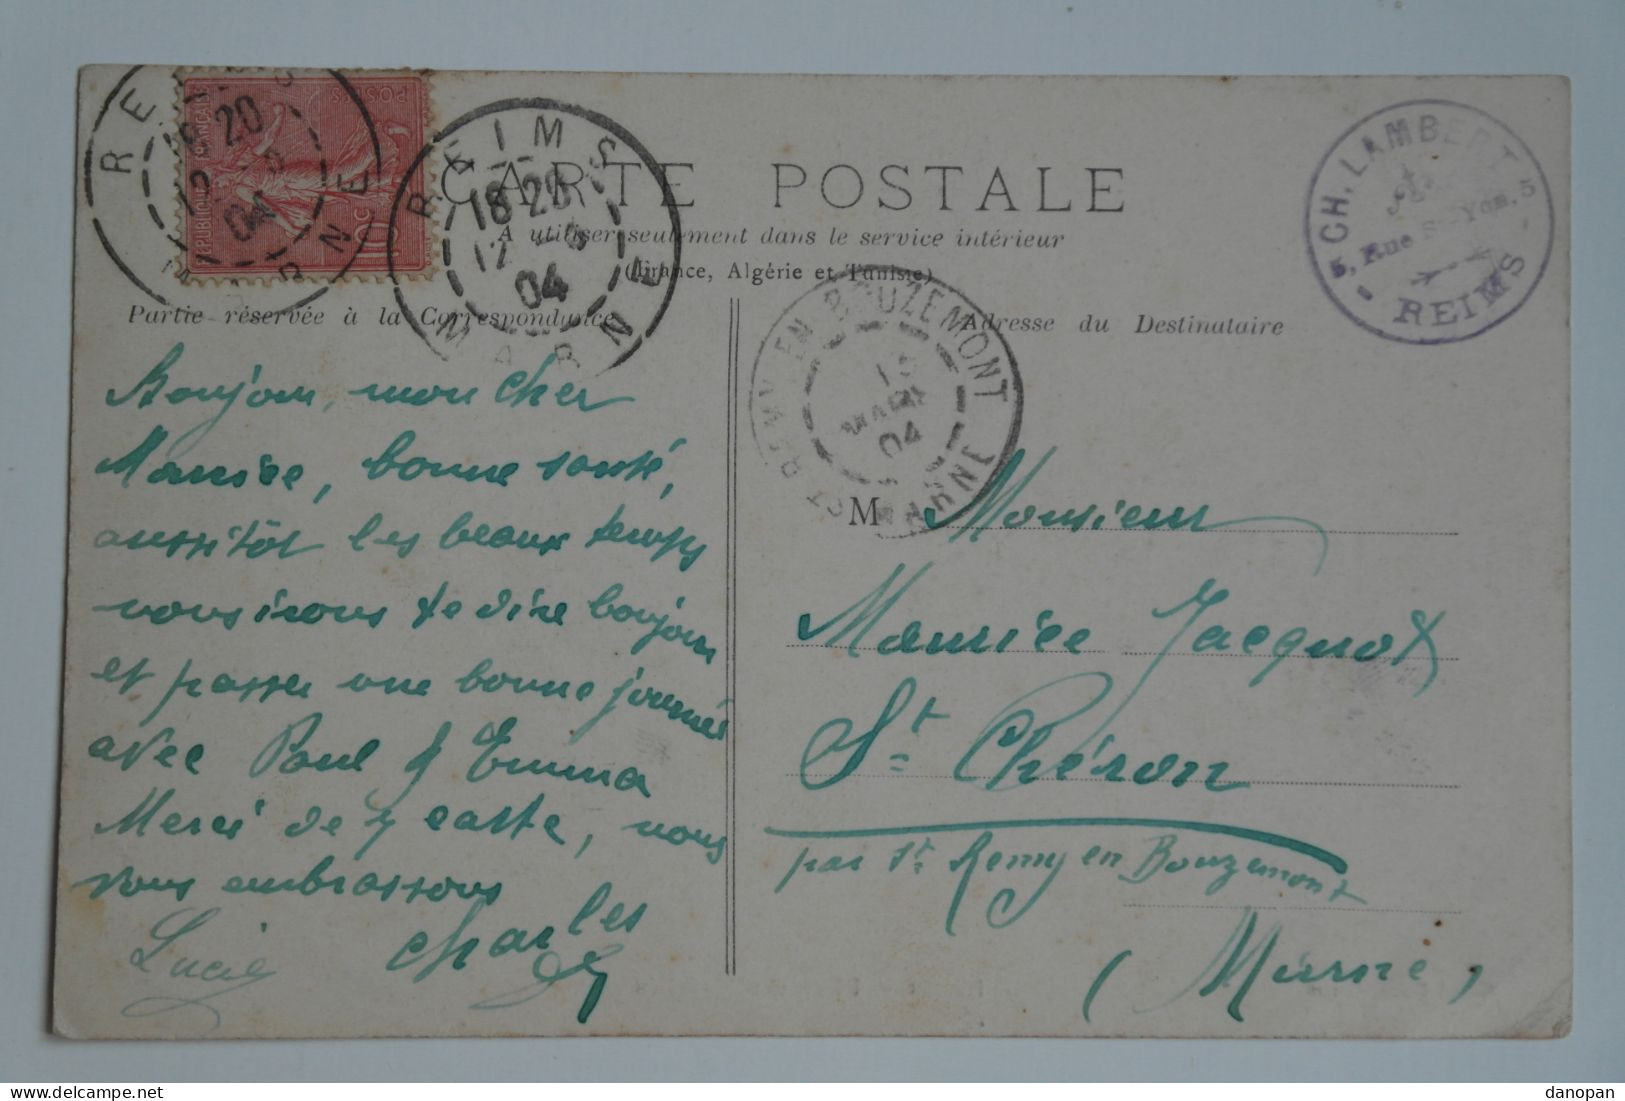 REIMS
18 20
12 - 3
04
MARNE
REPUBLIQUE FRANÇAISE
POSTES
10c
REIMS
18 20
12 - 3
04
MARNE
CARTE POSTALE
A utiliser seulement dans le service intérieur
(France, Algérie et Tunisie)
Partie réservée à la Correspondance
Adresse du Destinataire
CH. LAMBERT
5, Rue St Yon, 5
REIMS
ST REMY EN BOUZEMONT
13
MARS
04
MARNE
Bonjour, mon cher
Maurice, bonne santé,
aussitôt les beaux temps
nous irons te dire bonjour
et passer une bonne journée
avec Paul & Emma
Merci de ta carte, nous
vous embrassons
Lucie Charles
M Monsieur
Maurice Jacquot
St Chéron
par St Remy en Bouzemont
(Marne)
danopan